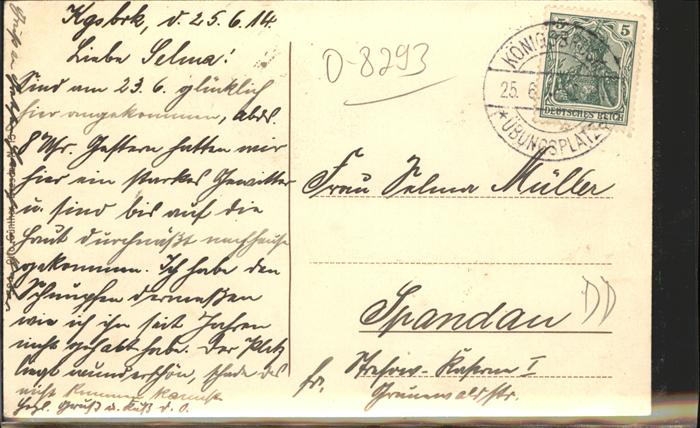 Kgsbrk, d. 25.6.14.
Liebe Selma!
Sind am 23.6. glücklich
hier angekommen, abds.
8 Uhr. Gestern hatten wir
hier ein starkes Gewitter
u. sind bis auf die
Haut durchnäßt nachhause
gekommen. Ich habe den
Schnupfen dermaßen
wie ich ihn seit Jahren
nicht gehabt habe. Der Platz
liegt wunderschön, schade das
nicht kommen kannst
Herzl. Gruß u. Kuß d. O.
D-8293
KÖNIGSBRÜCK
25. 6.
*ÜBUNGSPLATZ
5 5
DEUTSCHES REICH
Frau Selma Müller
Spandau
DD
fr. Kasern I
Grunewaldstr.
Otto Günther